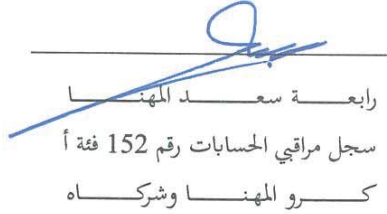 رابعة سعد المهنا
سجل مراقبي الحسابات رقم 152 فئة أ
كرو المهنا وشركاه